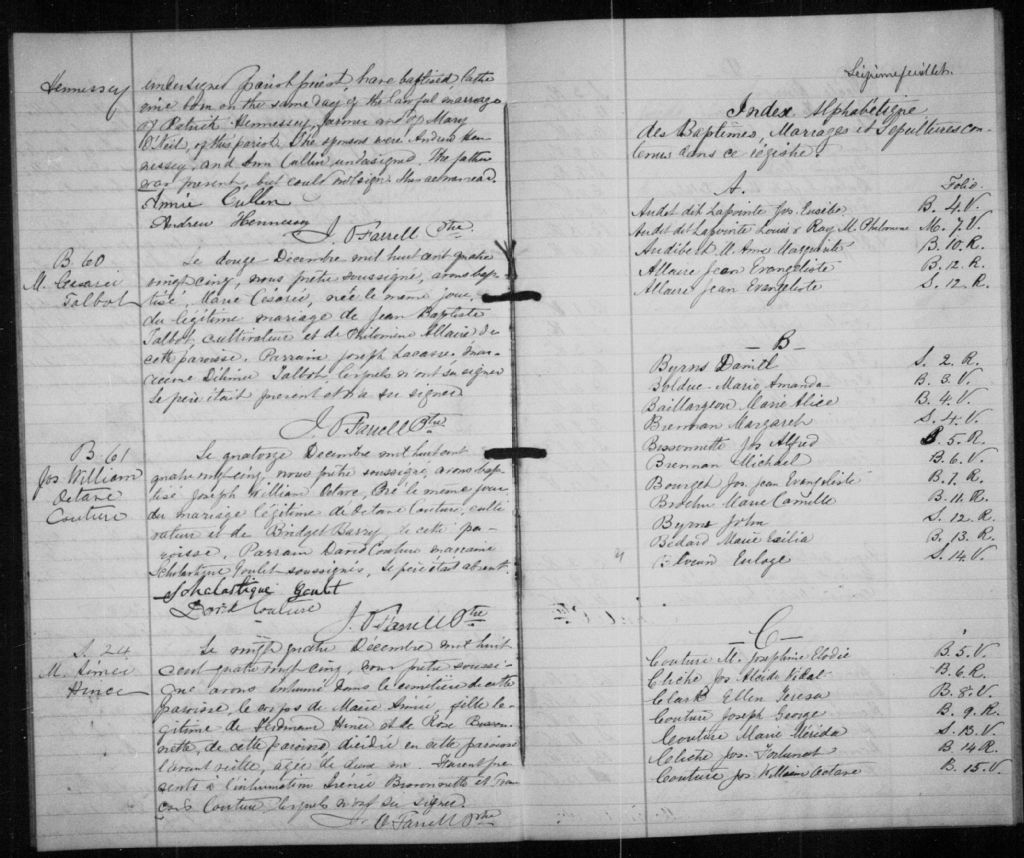 Hennessey
undersigned parish priest, have baptised, Cathe
rine born on the same day of the lawful marriage
of Patrick Hennessey, farmer and of Mary
O'Neil, of this parish. The sponsors were Andrew Hen
nessey, and Ann Cullin undersigned. The father
was present, but could not sign this act
Annie Cullen
Andrew Hennessy
J. O'Farrell Ptre
B. 60
M. Cesarie
Talbot
Le douze Décembre mil huit cent quatre
vingt cinq, nous prêtre soussigné, avons bap
tisé, Marie Cesarie, née le même jour,
du légitime mariage de Jean Baptiste
Talbot, cultivateur et de Philomine Allaire de
cette paroisse. Parrain Joseph Lacasse, mar
raine Talbot, lesquels n'ont su signer
Le père était present et n'a su signer
J. O'Farrell Ptre
B. 61
Jos William
Octave
Couture
Le quatorze Décembre mil huit cent
quatre vingt cinq, nous prêtre soussigné, avons bap
tisé Joseph William Octave, né le même jour
du mariage légitime de Octave Couture, culti
vateur et de Bridget Barry de cette pa-
roisse. Parrain David Couture marraine
Scholastique Goulet soussignés, le père était absent.
Scholastique Goulet
David Couture
J. O'Farrell Ptre
S. 24
M.
Le vingt quatre Décembre mil huit
cent quatre vingt cinq, nous prêtre soussi-
gné avons inhumé dans le cimetière de cette
paroisse, le corps de Marie fille lé
gitime de et de Rose
de cette paroisse, décédée en cette paroisse
l'avant veille, agée de deux ans. Furent pre
sents à l'inhumation et Fran
cois Couture lesquels n'ont su signer.
J. O'Farrell Ptre
Index Alphabétique
des Baptêmes, Mariages et Sepultures con-
tenus dans ce régistre.
A. Folio.
Audet dit Lapointe Jos. Eusèbe. B. 4. V.
Audet dit Lapointe Louis & Ray M. Philomene M. 7. V.
Audibert M. Anne Marguerite B. 10. R.
Allaire Jean Evangeliste B. 12. R.
Allaire Jean Evangeliste S. 12. R.
— B —
Byrns Daniel S. 2. R.
Bolduc Marie Amanda B. 3. V.
Baillargeon Marie Alice B. 4. V.
Brennan Margareth S. 4. V.
Bissonnette Jos Alfred B. 5. R.
Brennan Michael B. 6. V.
Bourget Jos. Jean Evangeliste B. 7. R.
Marie Camille B. 11. R.
Byrns John S. 12. R.
Bédard Marie B. 13. R.
Euloge S. 14. V.
— C —
Couture M. Josephine Elodie B. 5. V.
Cliche Jos Alcide Vidal B. 6. R.
Clark Ellen Teresa B. 8. V.
Couture Joseph George B. 9. R.
Couture Marie Mérida S. 13. V.
Cliche Jos. Fortunat B. 14 R.
Couture Jos William Octave B. 15. V.